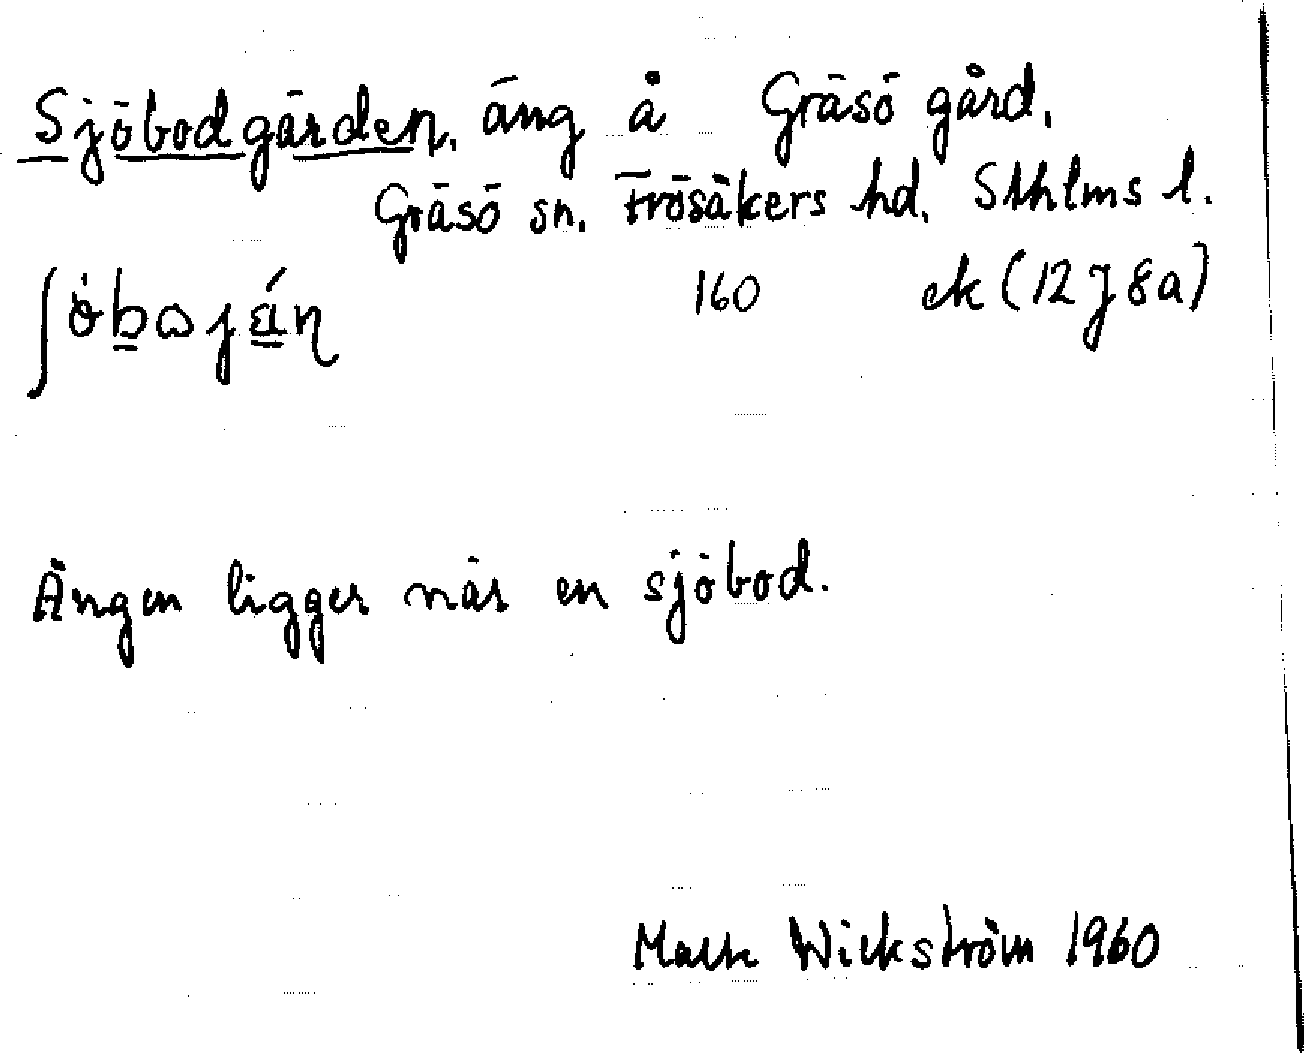 Sjöbodgärden, äng å Gräsö gård,
Gräsö sn. Frösåkers hd. Sthlms l.
160 ek (12 J 8a)
Ängen ligger när en sjöbod.
Wickström 1960